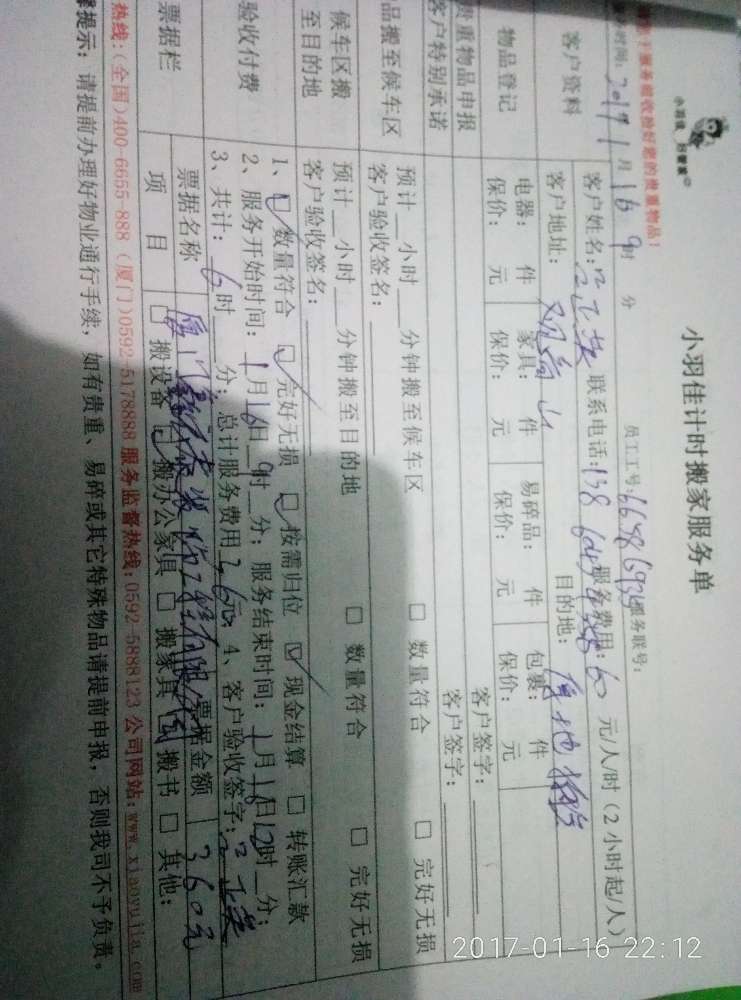 小羽佳计时搬家服务单
小羽佳 好管家
服务能收拾好您的贵重物品!
时间: 2017年 1月 16 9时 分 员工工号: 服务联号:
客户资料
客户姓名: 联系电话:138 服务费用:60 元/人/时(2小时起/人)
客户地址: 观音山 目的地:
物品登记
电器: 件 家具: 件 易碎品: 件 包裹: 件
保价: 元 保价: 元 保价: 元 保价: 元
贵重物品申报 客户签字:
客户特别承诺 客户签字:
品搬至候车区
预计__小时__分钟搬至候车区 □ 数量符合 □ 完好无损
客户验收签名:
候车区搬至目的地
预计__小时__分钟搬至目的地 □ 数量符合 □ 完好无损
客户验收签名:
验收付费
1、☑ 数量符合 ☑ 完好无损 ☑ 按需归位 ☑ 现金结算 □ 转账汇款
2、服务开始时间:1月16日9时__分; 服务结束时间:1月16日12时__分;
3、共计:6时__分; 总计服务费用 元 4、客户验收签字:
票据栏
票据名称 票据金额 360元
项 目 □ 搬设备 ☑ 搬办公家具 □ 搬家具 搬书 □ 其他:
热线:(全国)400-6655-888 (厦门)0592-5178888 服务监督热线:0592-5888123 公司网站:www.xiaoyujia.com
提示: 请提前办理好物业通行手续, 如有贵重、易碎或其它特殊物品请提前申报, 否则我司不予负责。
2017-01-16 22:12